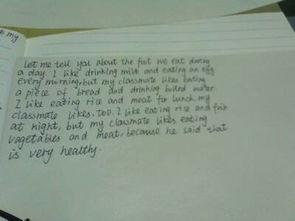 my
Let me tell you about the foot we eat during
a day. I like drinking milk and eating an egg
every morning, but my classmate likes eating
a piece of bread and drinking boiled water.
I like eating rice and meat for lunch. my
classmate likes, too. I like eating rice and fish
at night, but my classmate likes eating
vagetables and meat, because he said that
is very healthy.